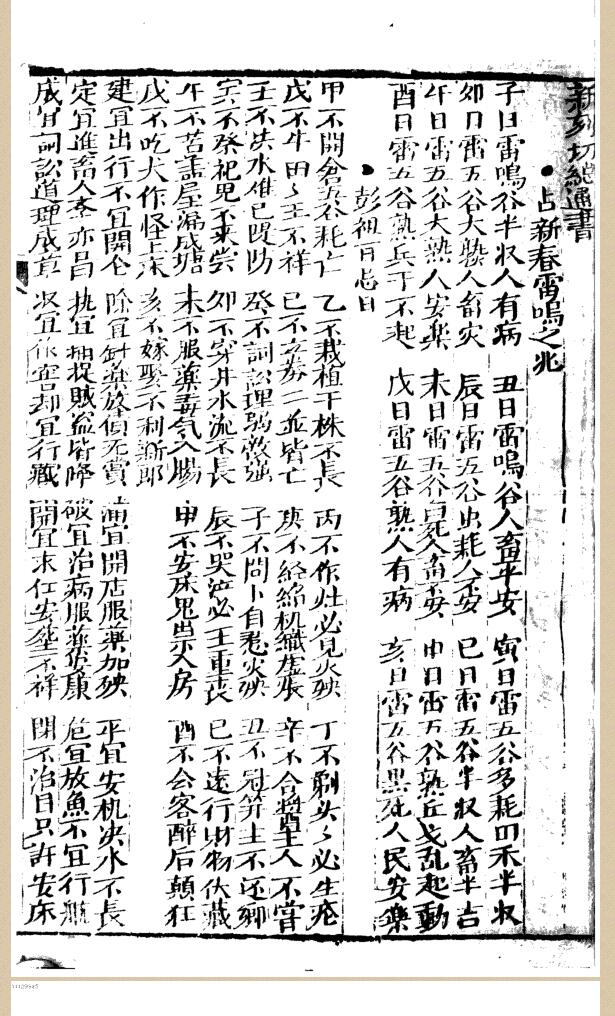 通書
●占新春雷鳴之兆
子日雷鳴谷半収人有病 丑日雷鳴谷人畜平安 寅日雷五谷多耗田禾半収
卯日雷五谷大熟人畜灾 辰日雷五谷虫耗人安 巳日雷五谷半収人畜半吉
午日雷五谷大熟人安楽 未日雷五谷人畜安 申日雷五谷熟丘戈乱起動
酉日雷五谷熟兵干不起 戊日雷五谷熟人有病 亥日雷五谷黒死人民安樂
●彭祖百忌日
甲不開倉谷耗亡 乙不栽植干株不長 丙不作灶必見火殃 丁不剃头々必生疮
戊不牛田々主不祥 己不二並皆亡 庚不経絡机織虚張 辛不合醬主人不嘗
壬不決水难已隄防 癸不詞訟理弱敵强 子不問卜自惹火殃 丑不冠笄主不还鄉
寅不祭祀鬼不来尝 卯不穿井水流不長 辰不哭泣必主重丧 巳不遠行財物伏藏
午不苫盖屋漏成塘 未不服藥毒气入腸 申不安床鬼祟入房 酉不会客醉后顛狂
戊不吃犬作怪上床 亥不嫁娶不利新郎
建宜出行不宜開仓 除宜針藥放債无賞 滿宜開店服藥加殃 平宜安机决水不長
定宜進畜人奎亦昌 执宜捉賊盗皆降 破宜治病服藥康 危宜放魚不宜行
成宜詞訟道理成章 収宜却宜行藏 開宜求仕安塟不祥 閉不治目只許安床